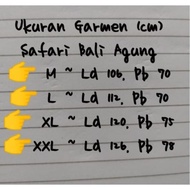 Ukuran Garmen (cm)
Safari Bali Agung
M ~ Ld 106, Pb 70
L ~ Ld 112, Pb 70
XL ~ Ld 120, Pb 75
XXL ~ Ld 126, Pb 78